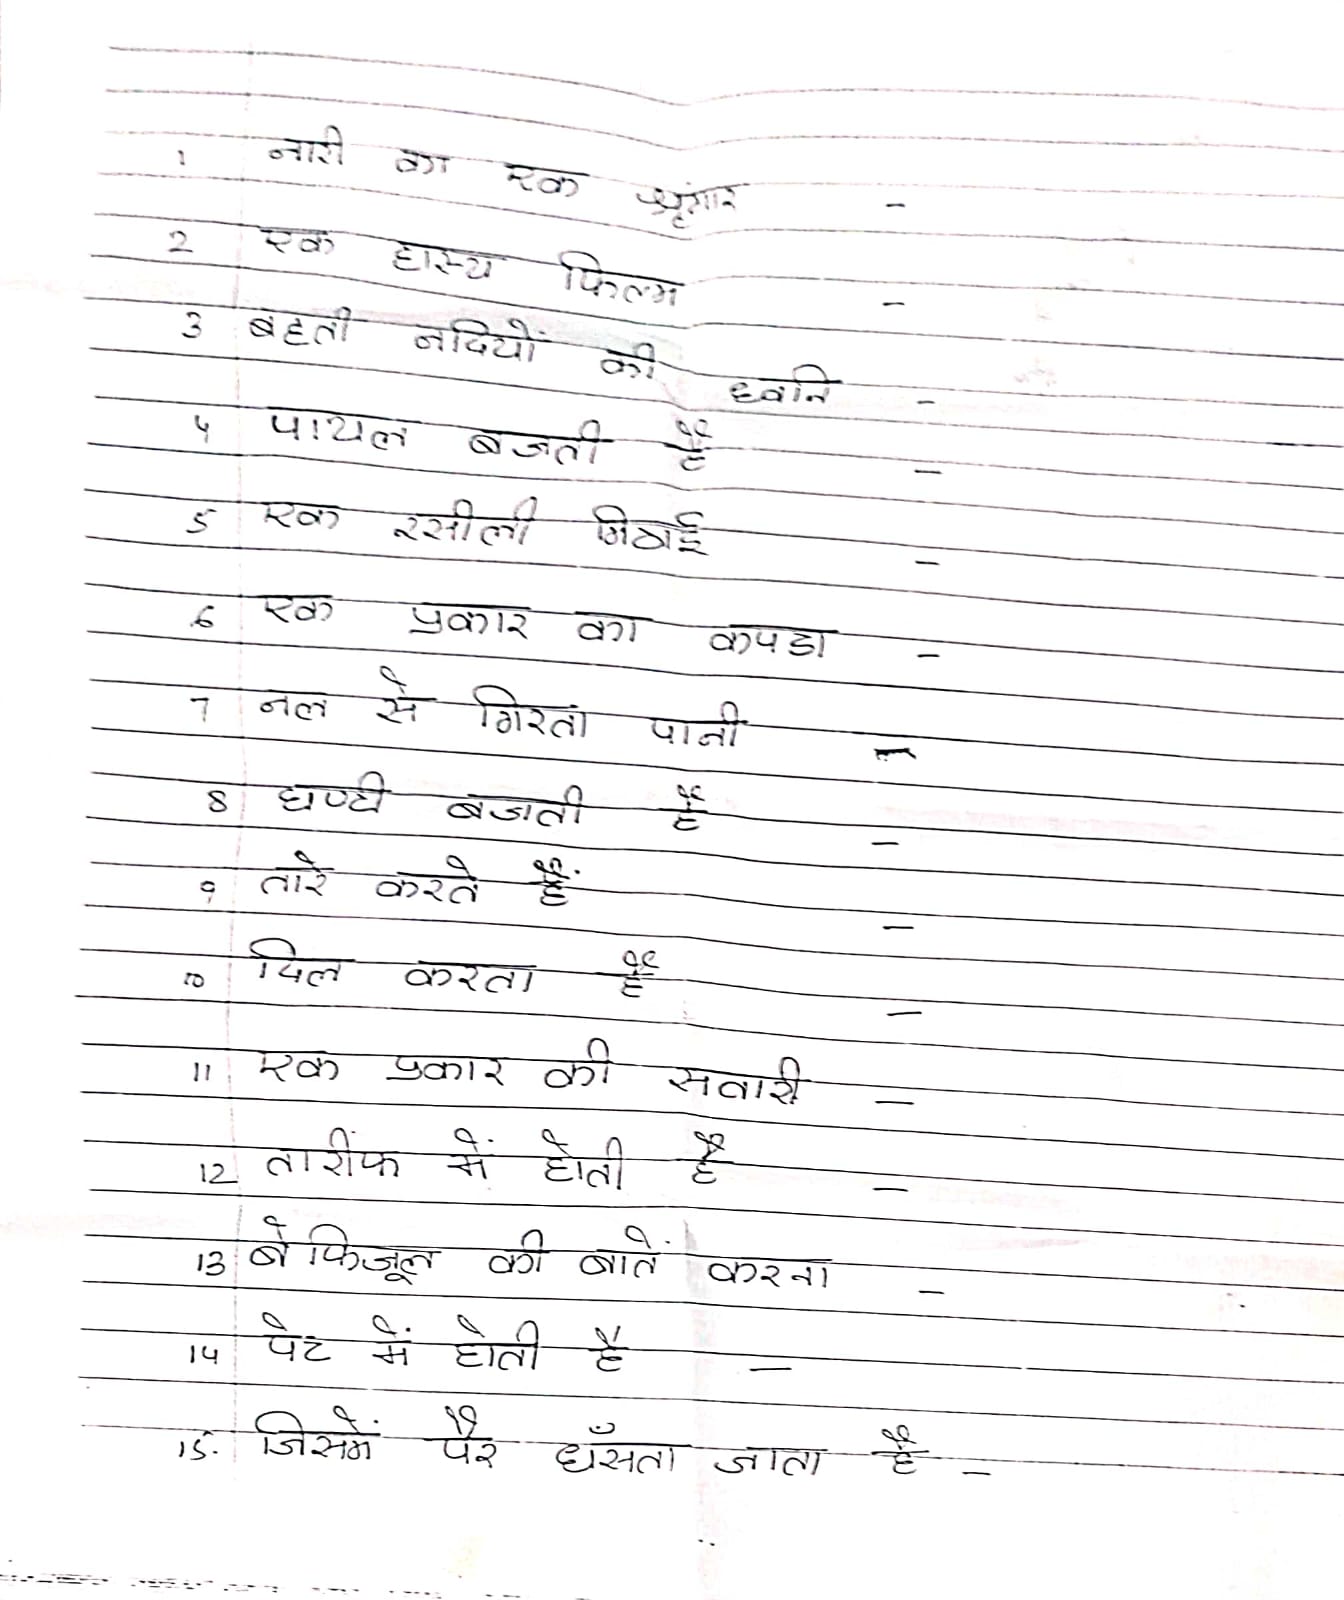 1 नारी का एक श्रृंगार -
2 एक हास्य फिल्म -
3 बहती नदियों की ध्वनि -
4 पायल बजती है -
5 एक रसीली मिठाई -
6 एक प्रकार का कपडा -
7 नल से गिरता पानी -
8 घण्टी बजती है -
9 तारे करते हैं -
10 दिल करता है -
11 एक प्रकार की सवारी -
12 तारींफ में होती है -
13 बेफिजूल की बातें करना -
14 पेट में होती है -
15. जिसमें पैर धँसता जाता है -